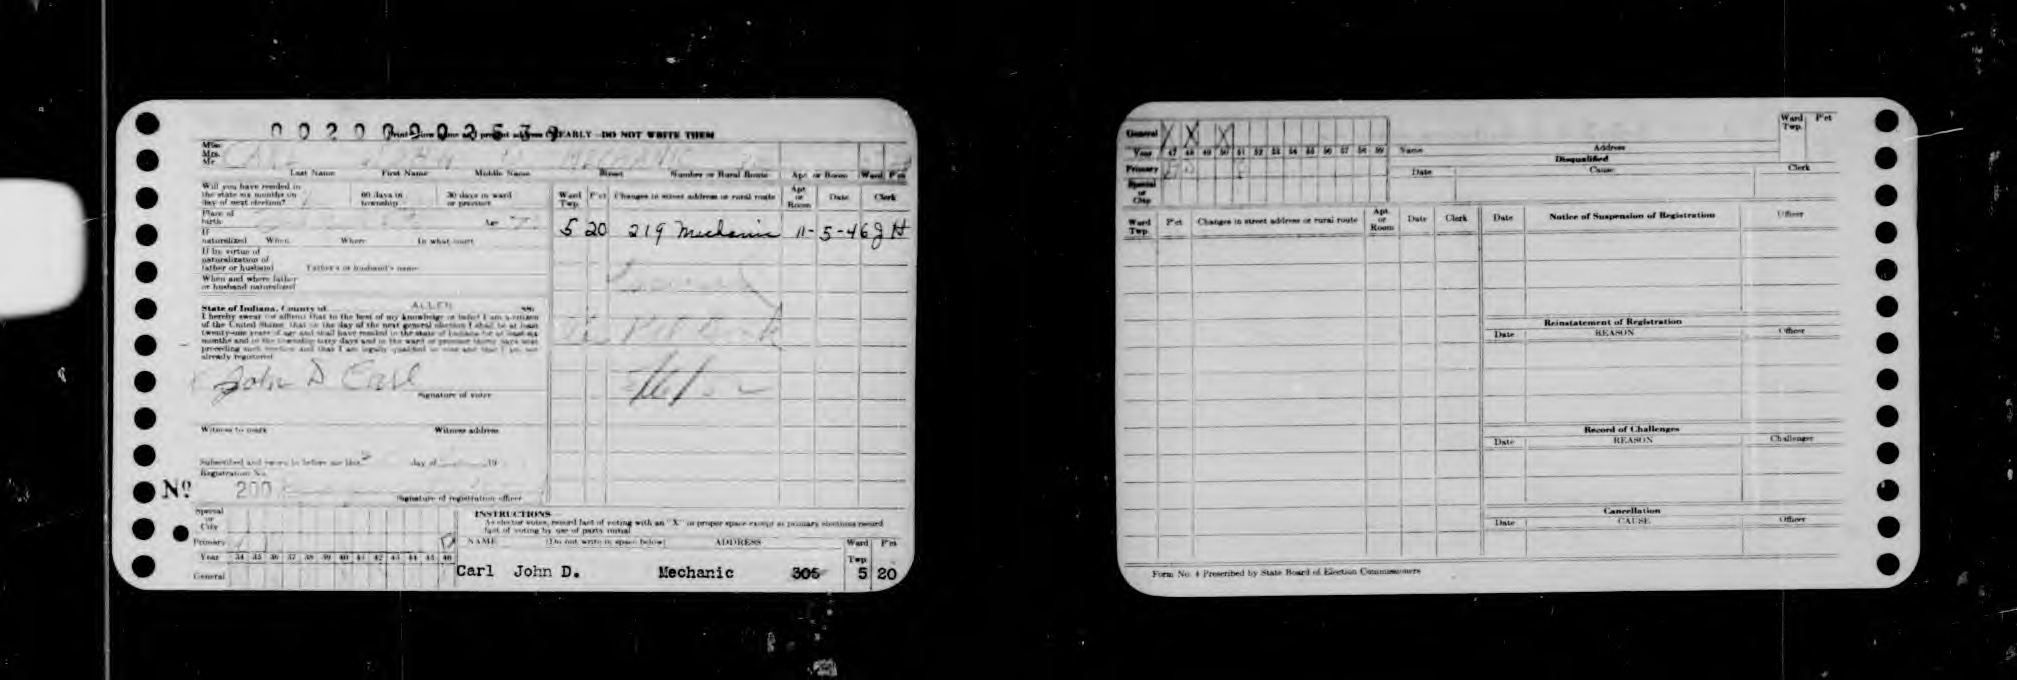 Print your name and present address CLEARLY—DO NOT WRITE THEM
Miss
Mrs.
Mr.
CARL JOHN D MECHANIC
Last Name First Name Middle Name Street Number or Rural Route Apt. or Room Ward P'ct
Will you have resided in the state six months on day of next election?
60 days in township
30 days in ward or precinct
Place of birth
Age
If naturalized When Where In what court
If by virtue of naturalization of father or husband Father's or husband's name
When and where father or husband naturalized
Ward Twp. P'ct Changes in street address or rural route Apt. or Room Date Clerk
5 20 219 Mechanic 11-5-46 J H
State of Indiana, County of ALLEN SS:
I hereby swear (or affirm) that to the best of my knowledge or belief I am a citizen
of the United States; that on the day of the next general election I shall be at least
twenty-one years of age and shall have resided in the state of Indiana for at least six
months and in the township sixty days and in the ward or precinct thirty days next
preceding such election and that I am legally qualified to vote and that I am not
already registered
John D Carl
Signature of voter
Witness to mark Witness address
Subscribed and sworn to before me this day of 19
Registration No.
Nº 200
Signature of registration officer
Special or City
Primary
Year 34 35 36 37 38 39 40 41 42 43 44 45 46
General
INSTRUCTIONS
As elector votes, record fact of voting with an "X" in proper space except at primary elections record
fact of voting by use of party initial
NAME (Do not write in space below) ADDRESS Ward Twp. P'ct
Carl John D. Mechanic 305 5 20
General X X X
Year 47 48 49 50 51 52 53 54 55 56 57 58 59
Primary
Special or City
Name Address Ward Twp. P'ct
Disqualified
Date Cause Clerk
Ward Twp. P'ct Changes in street address or rural route Apt. or Room Date Clerk
Date Notice of Suspension of Registration Officer
Reinstatement of Registration
Date REASON Officer
Record of Challenges
Date REASON Challenger
Cancellation
Date CAUSE Officer
Form No. 4 Prescribed by State Board of Election Commissioners